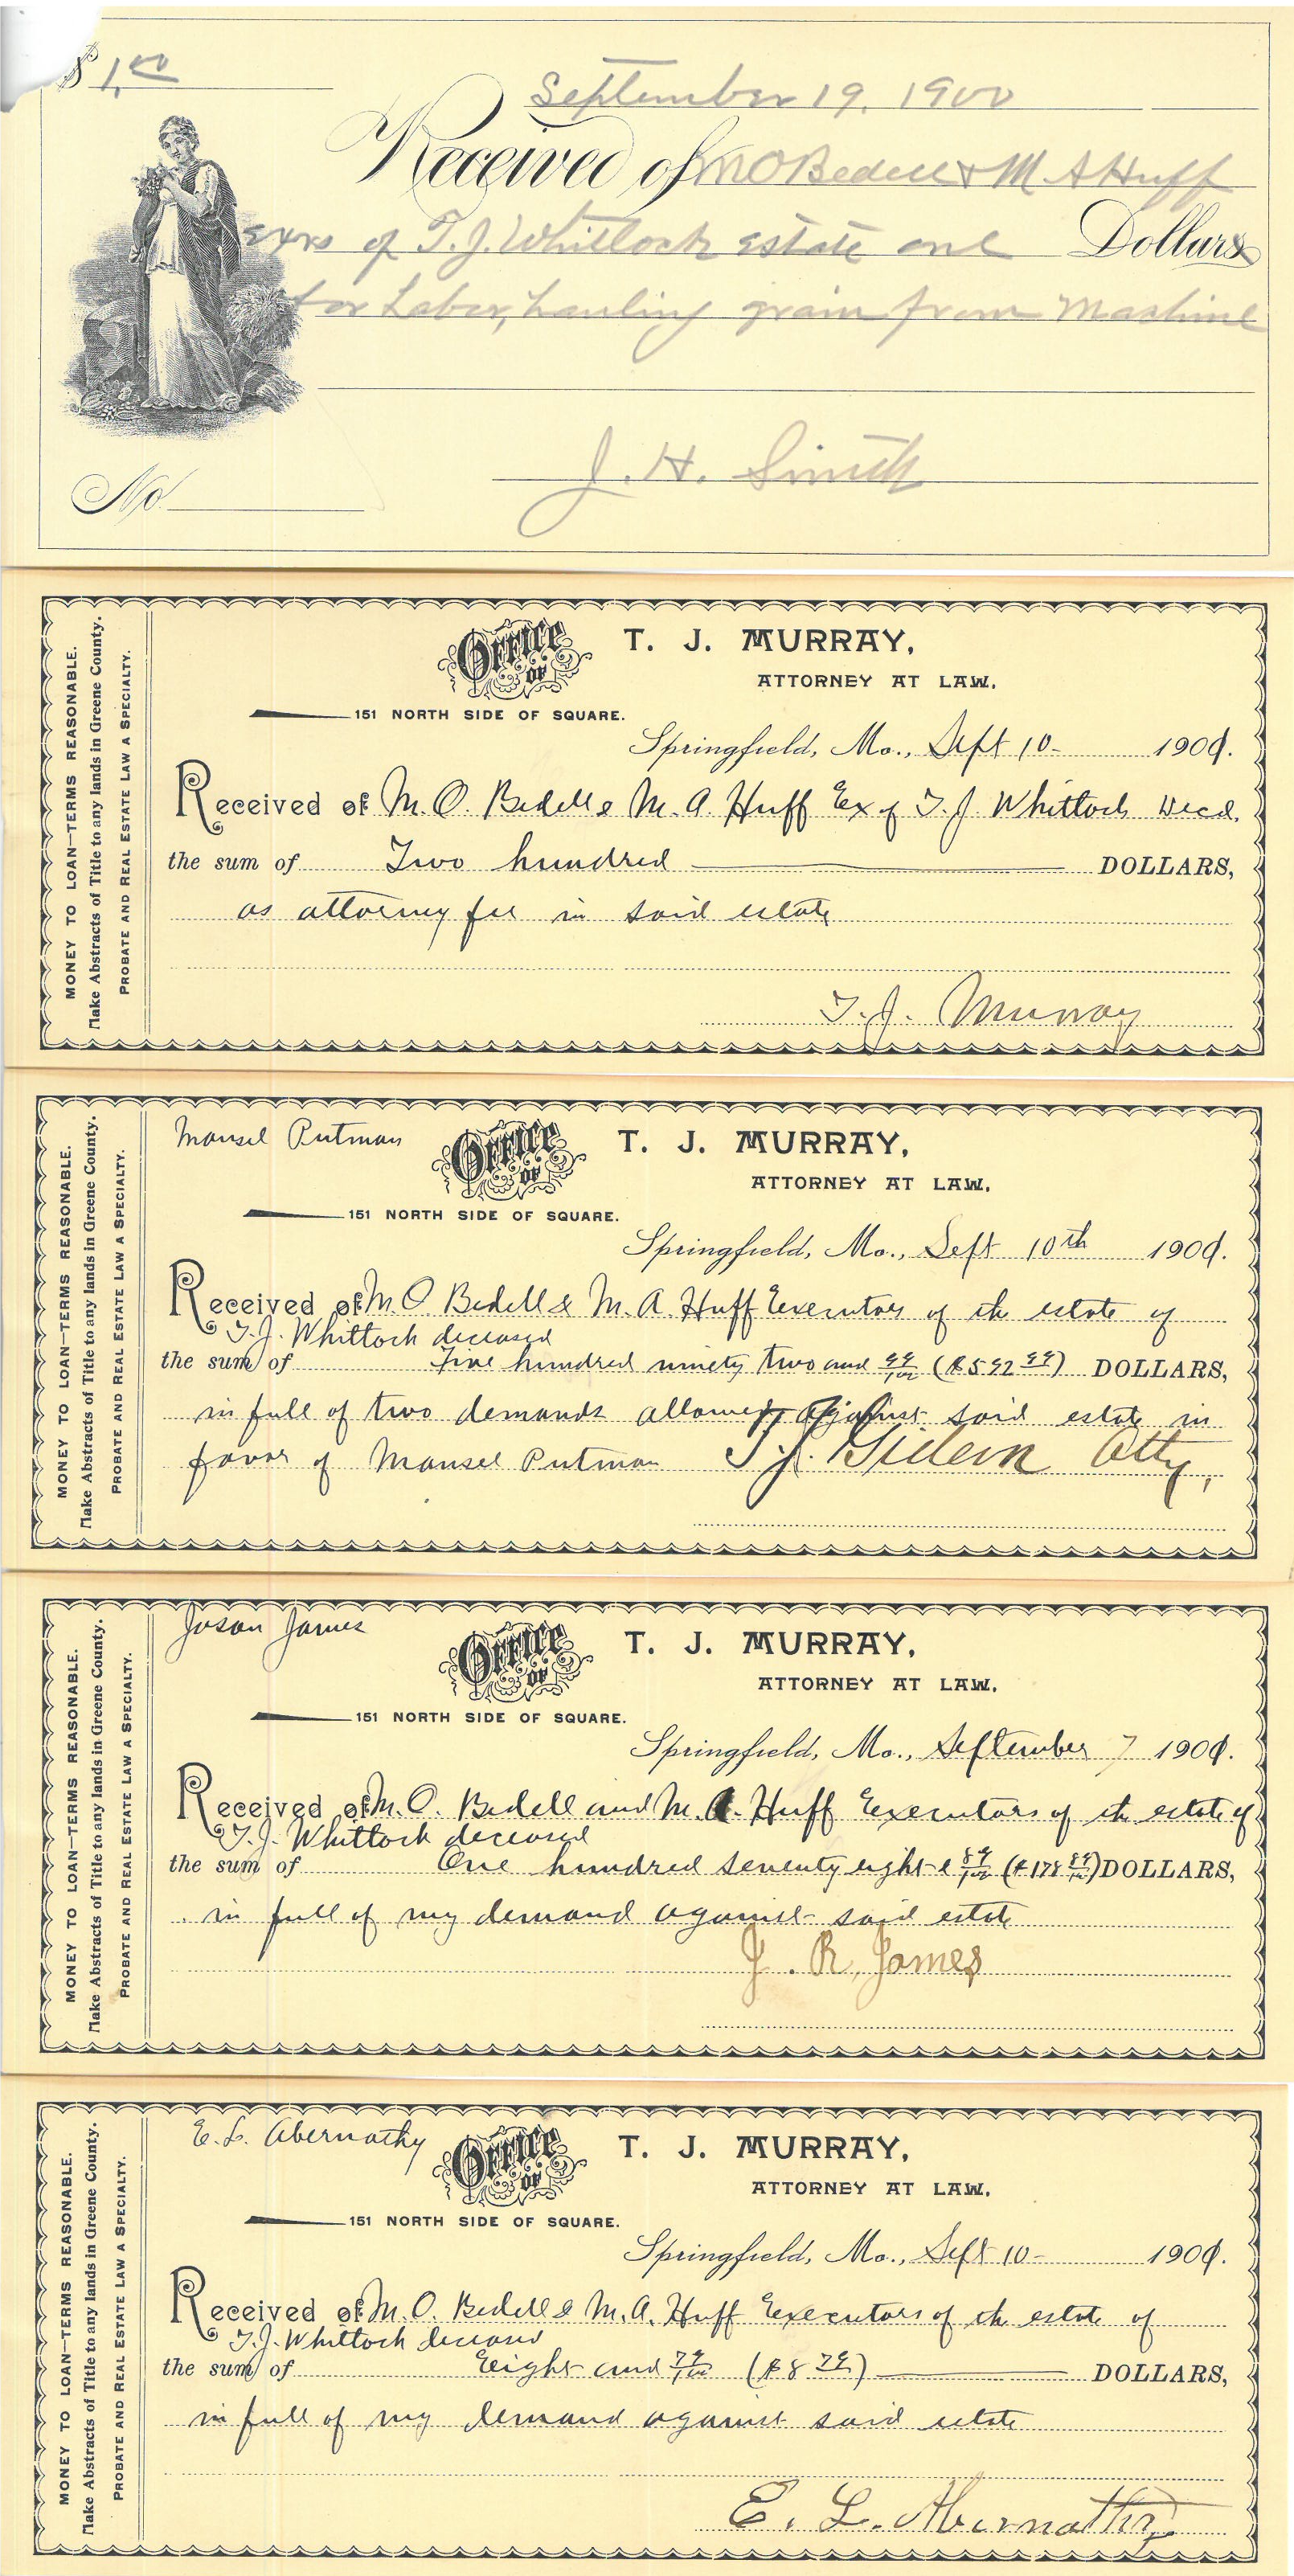 $ 1.00
September 19, 1900
Received of M O Bedell & M A Huff
Exrs of T. J. Whitlock estate one Dollars
for Labor, hauling grain from Mashine
J. H. Smith
No.
MONEY TO LOAN—TERMS REASONABLE.
Make Abstracts of Title to any lands in Greene County.
PROBATE AND REAL ESTATE LAW A SPECIALTY.
OFFICE OF
T. J. MURRAY,
ATTORNEY AT LAW,
151 NORTH SIDE OF SQUARE.
Springfield, Mo., Sept 10- 1900.
Received of M. O. Bedell & M. A. Huff Ex of T. J. Whitlock Decd.
the sum of Two hundred DOLLARS,
as attorney fee in said estate
T. J. Murray
MONEY TO LOAN—TERMS REASONABLE.
Make Abstracts of Title to any lands in Greene County.
PROBATE AND REAL ESTATE LAW A SPECIALTY.
Mansel Putman
OFFICE OF
T. J. MURRAY,
ATTORNEY AT LAW,
151 NORTH SIDE OF SQUARE.
Springfield, Mo., Sept 10th 1900.
Received of M. O. Bedell & M. A. Huff Executors of the estate of
T. J. Whitlock deceased
the sum of Five hundred ninety two and DOLLARS,
in full of two demands allowed against said estate in
favor of Mansel Putman T. J. Gideon Atty,
MONEY TO LOAN—TERMS REASONABLE.
Make Abstracts of Title to any lands in Greene County.
PROBATE AND REAL ESTATE LAW A SPECIALTY.
Jason James
OFFICE OF
T. J. MURRAY,
ATTORNEY AT LAW,
151 NORTH SIDE OF SQUARE.
Springfield, Mo., September 7 1900.
Received of M. O. Bedell and M. A. Huff Executors of the estate of
T. J. Whitlock deceased
the sum of One hundred seventy eight & DOLLARS,
in full of my demand against said estate
J. R. James
MONEY TO LOAN—TERMS REASONABLE.
Make Abstracts of Title to any lands in Greene County.
PROBATE AND REAL ESTATE LAW A SPECIALTY.
E. L. Abernathy
OFFICE OF
T. J. MURRAY,
ATTORNEY AT LAW,
151 NORTH SIDE OF SQUARE.
Springfield, Mo., Sept 10- 1900.
Received of M. O. Bedell & M. A. Huff Executors of the estate of
T. J. Whitlock deceased
the sum of Eight and DOLLARS,
in full of my demand against said estate
E. L. Abernathy